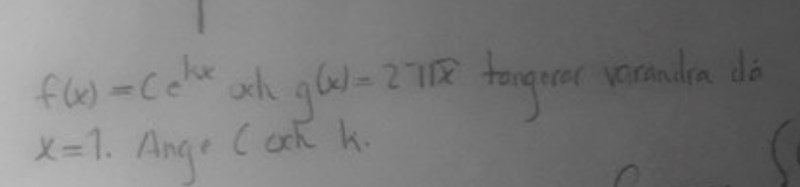 f(x) = Ce^{kx} och g(x) = 27√x tangerar varandra då
x=1. Ange C och k.